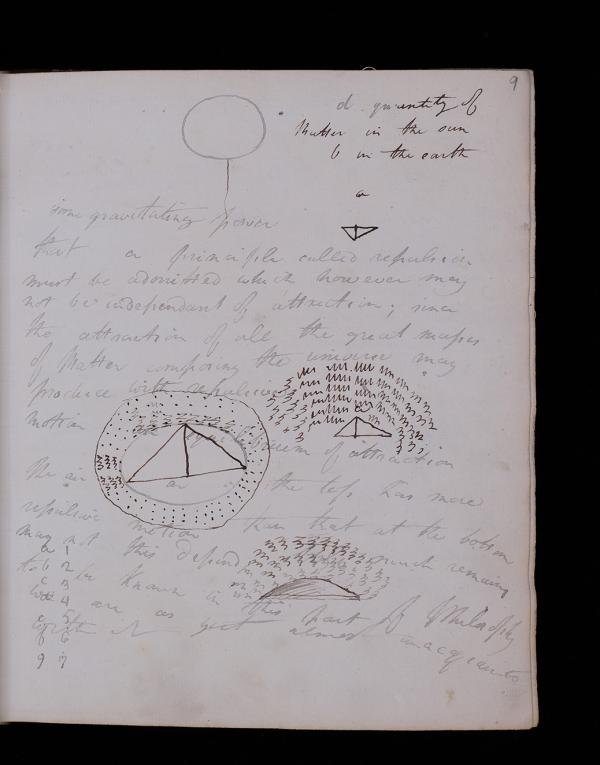 9
d quantity of
Matter in the sun
b in the earth
a
some gravitating power
that a principle called repulsion
must be admitted which however may
not be independant of attraction; since
the attraction of all the great masses
of Matter composing the universe may
produce with repulsive
motion of attraction
the air at the top has more
repulsive motion than that at the bottom
may not this depend much remains
to be known in this part of Philosophy
are as yet almost unacquainted
a 1
b 2
c 3
d 4
e 5
f 6
g 7